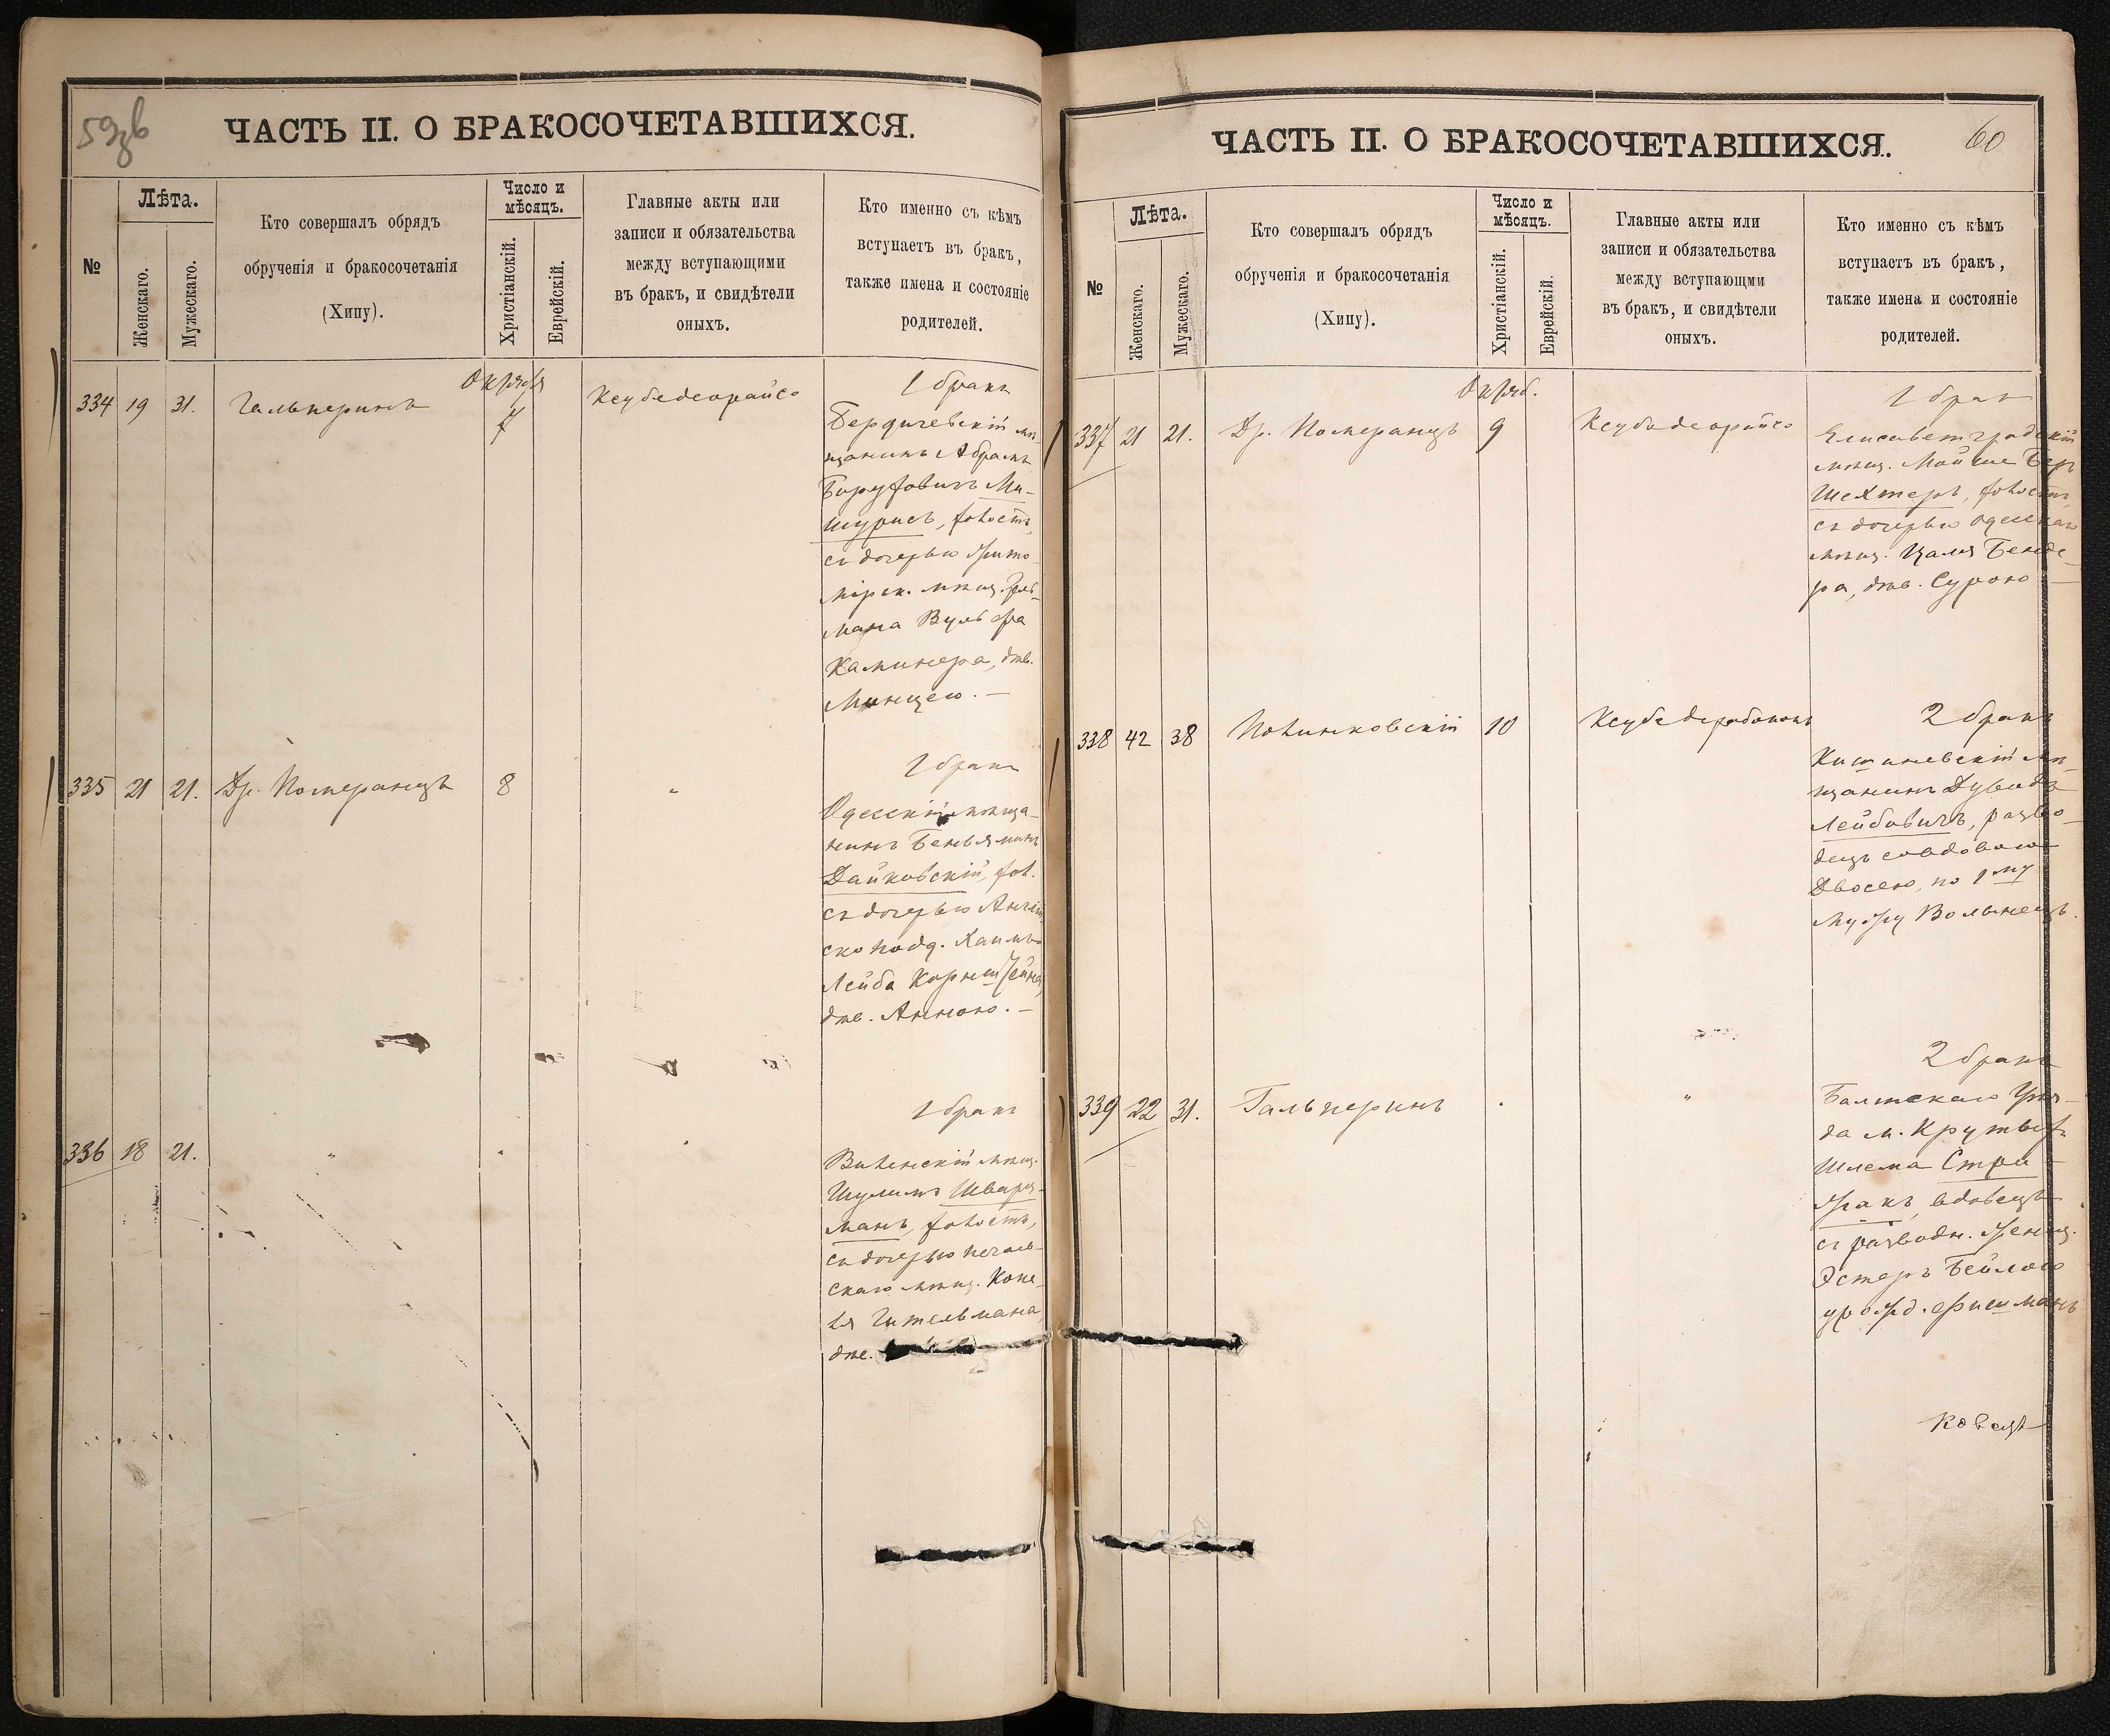 59зв
ЧАСТЬ II. О БРАКОСОЧЕТАВШИХСЯ.
№
Лѣта.
Женскаго.
Мужескаго.
Кто совершалъ обрядъ
обрученія и бракосочетанія
(Хипу).
Число и
мѣсяцъ.
Христіанскій.
Еврейскій.
Главные акты или
записи и обязательства
между вступающими
въ бракъ, и свидѣтели
оныхъ.
Кто именно съ кѣмъ
вступаетъ въ бракъ,
также имена и состояніе
родителей.
Октября
334 19 31. Гальперинъ 7 Ксубедеорайсо
1 бракъ
Бердичевскій мѣ-
щанинъ Абрамъ
Боруховичъ Ми-
шурисъ, холостъ,
съ дочерью Жито-
мірск. мѣщ.
мана Вульфа
Каминера, дѣв.
335 21 21. Др. Померанцъ 8 "
1 бракъ
Одесскій мѣща-
нинъ Беньяминъ
Дайковскій, хол.
съ дочерью Англій
ско подд. Хаимъ
Лейба
дѣв. Анною. —
336 18 21. " " "
1 бракъ
Виленскій мѣщ.
Шулимъ Шварц-
манъ, холостъ,
съ дочерью
скаго мѣщ. Копе-
ля Гительмана
дѣв.
60
ЧАСТЬ II. О БРАКОСОЧЕТАВШИХСЯ.
№
Лѣта.
Женскаго.
Мужескаго.
Кто совершалъ обрядъ
обрученія и бракосочетанія
(Хипу).
Число и
мѣсяцъ.
Христіанскій.
Еврейскій.
Главные акты или
записи и обязательства
между вступающми
въ бракъ, и свидѣтели
оныхъ.
Кто именно съ кѣмъ
вступаетъ въ бракъ,
также имена и состояніе
родителей.
Октяб.
337 21 21. Др. Померанцъ 9 Ксубедеорайсо
1 бракъ
Елисаветградскій
мѣщ. Мойше Беръ
Шехтеръ, холостъ,
съ дочерью одесскаго
мѣщ. Цаля Бенде-
ра, дѣв. Сурою —
338 42 38 Полинковскій 10 Ксубедерабонон
2 бракъ
Кишиневскій мѣ-
щанинъ Дувидъ
Лейбовичъ, разво-
децъ со вдовою
Двосею, по 1му
мужу Волынецъ.
339 22 31. Гальперинъ " "
2 бракъ
Балтскаго уѣз-
да м. Крутыхъ
Шлема Стри-
жакъ, вдовецъ
съ разводн. женщ.
Эстеръ Бейлою
урожд. Фишманъ